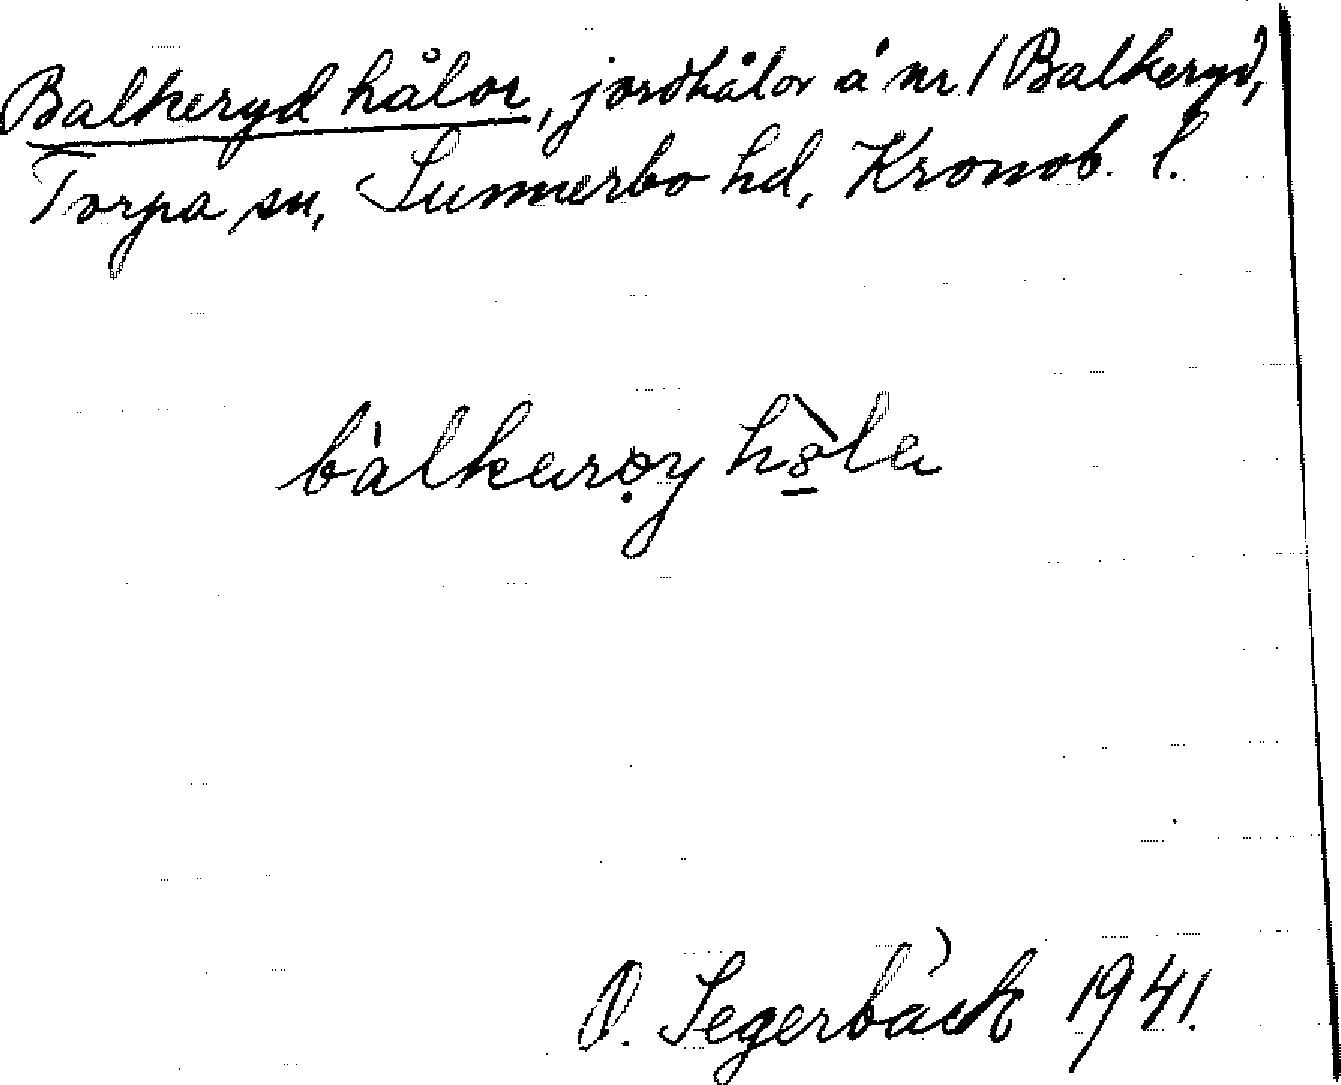 Balkeryd hålor, jordhålor å nr 1 Balkeryd,
Torpa sn, Sunnerbo hd, Kronob. l.
O. Segerbäck 1941.